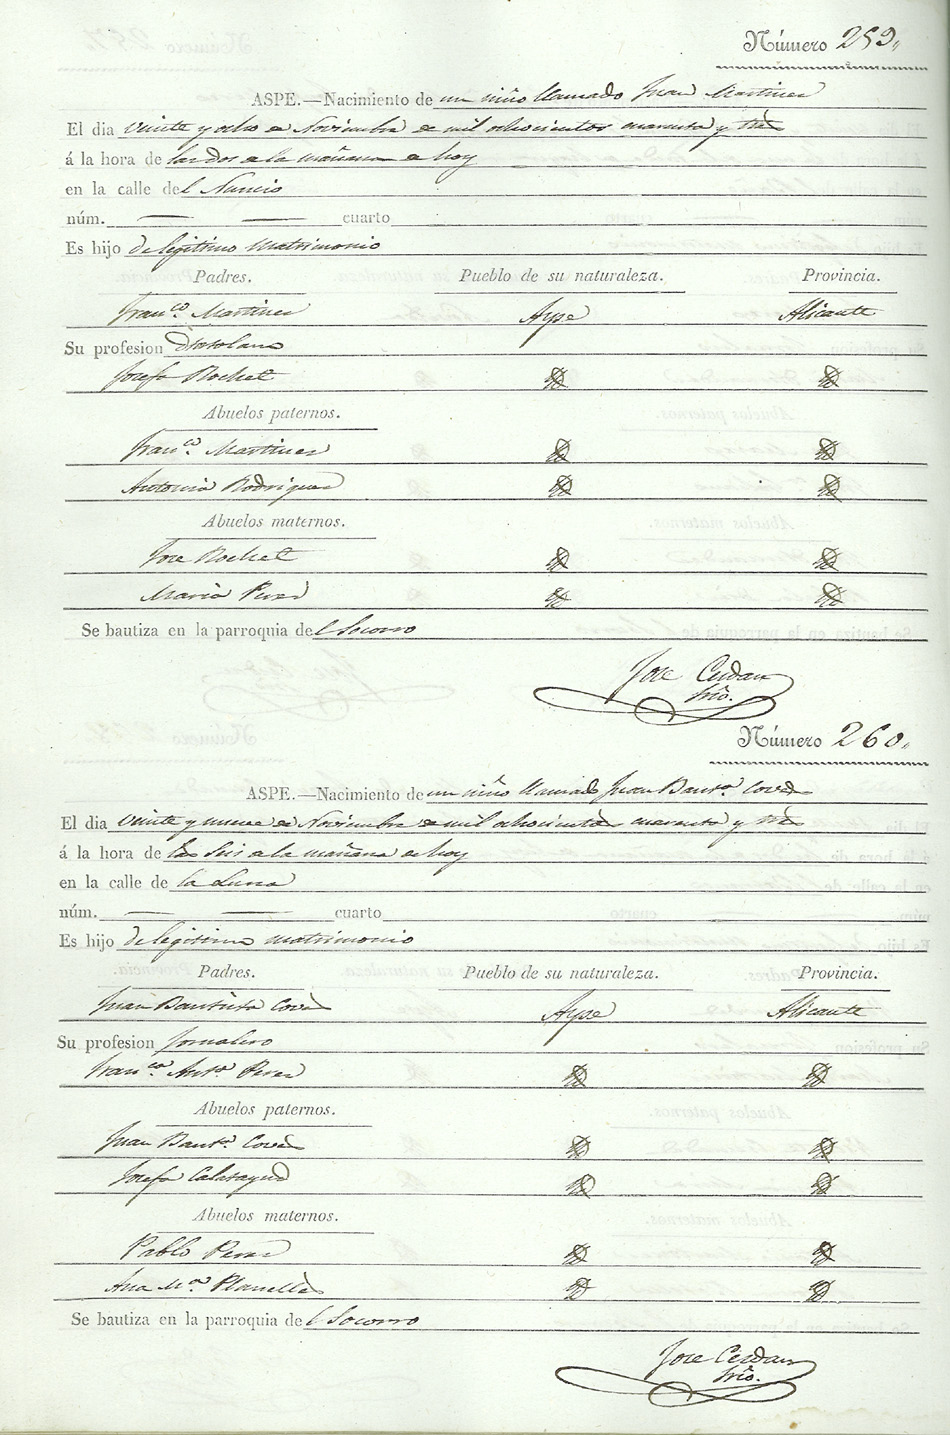 Número 259.
ASPE.—Nacimiento de un niño llamado Juan Martinez
El dia veinte y ocho de Noviembre de mil ochocientos cuarenta y tres
á la hora de las dos de la mañana de hoy
en la calle del Nuncio
núm. — — cuarto
Es hijo de legitimo matrimonio
Padres. Pueblo de su naturaleza. Provincia.
Franco. Martinez Aspe Alicante
Su profesion
Josefa Bochet Id Id
Abuelos paternos.
Franco. Martinez Id Id
Antonia Rodriguez Id Id
Abuelos maternos.
Jose Bochet Id Id
Maria Perez Id Id
Se bautiza en la parroquia del Socorro
Jose Cerdan
Srio.
Número 260.
ASPE.—Nacimiento de un niño llamado Juan Bauta. Coves
El dia veinte y nueve de Noviembre de mil ochocientos cuarenta y tres
á la hora de las seis de la mañana de hoy
en la calle de la Luna
núm. — — cuarto
Es hijo de legitimo matrimonio
Padres. Pueblo de su naturaleza. Provincia.
Juan Bautista Coves Aspe Alicante
Su profesion Jornalero
Franca. Anta. Perez Id Id
Abuelos paternos.
Juan Bauta. Coves Id Id
Josefa Calatayud Id Id
Abuelos maternos.
Pablo Perez Id Id
Ana Ma. Planelles Id Id
Se bautiza en la parroquia del Socorro
Jose Cerdan
Srio.